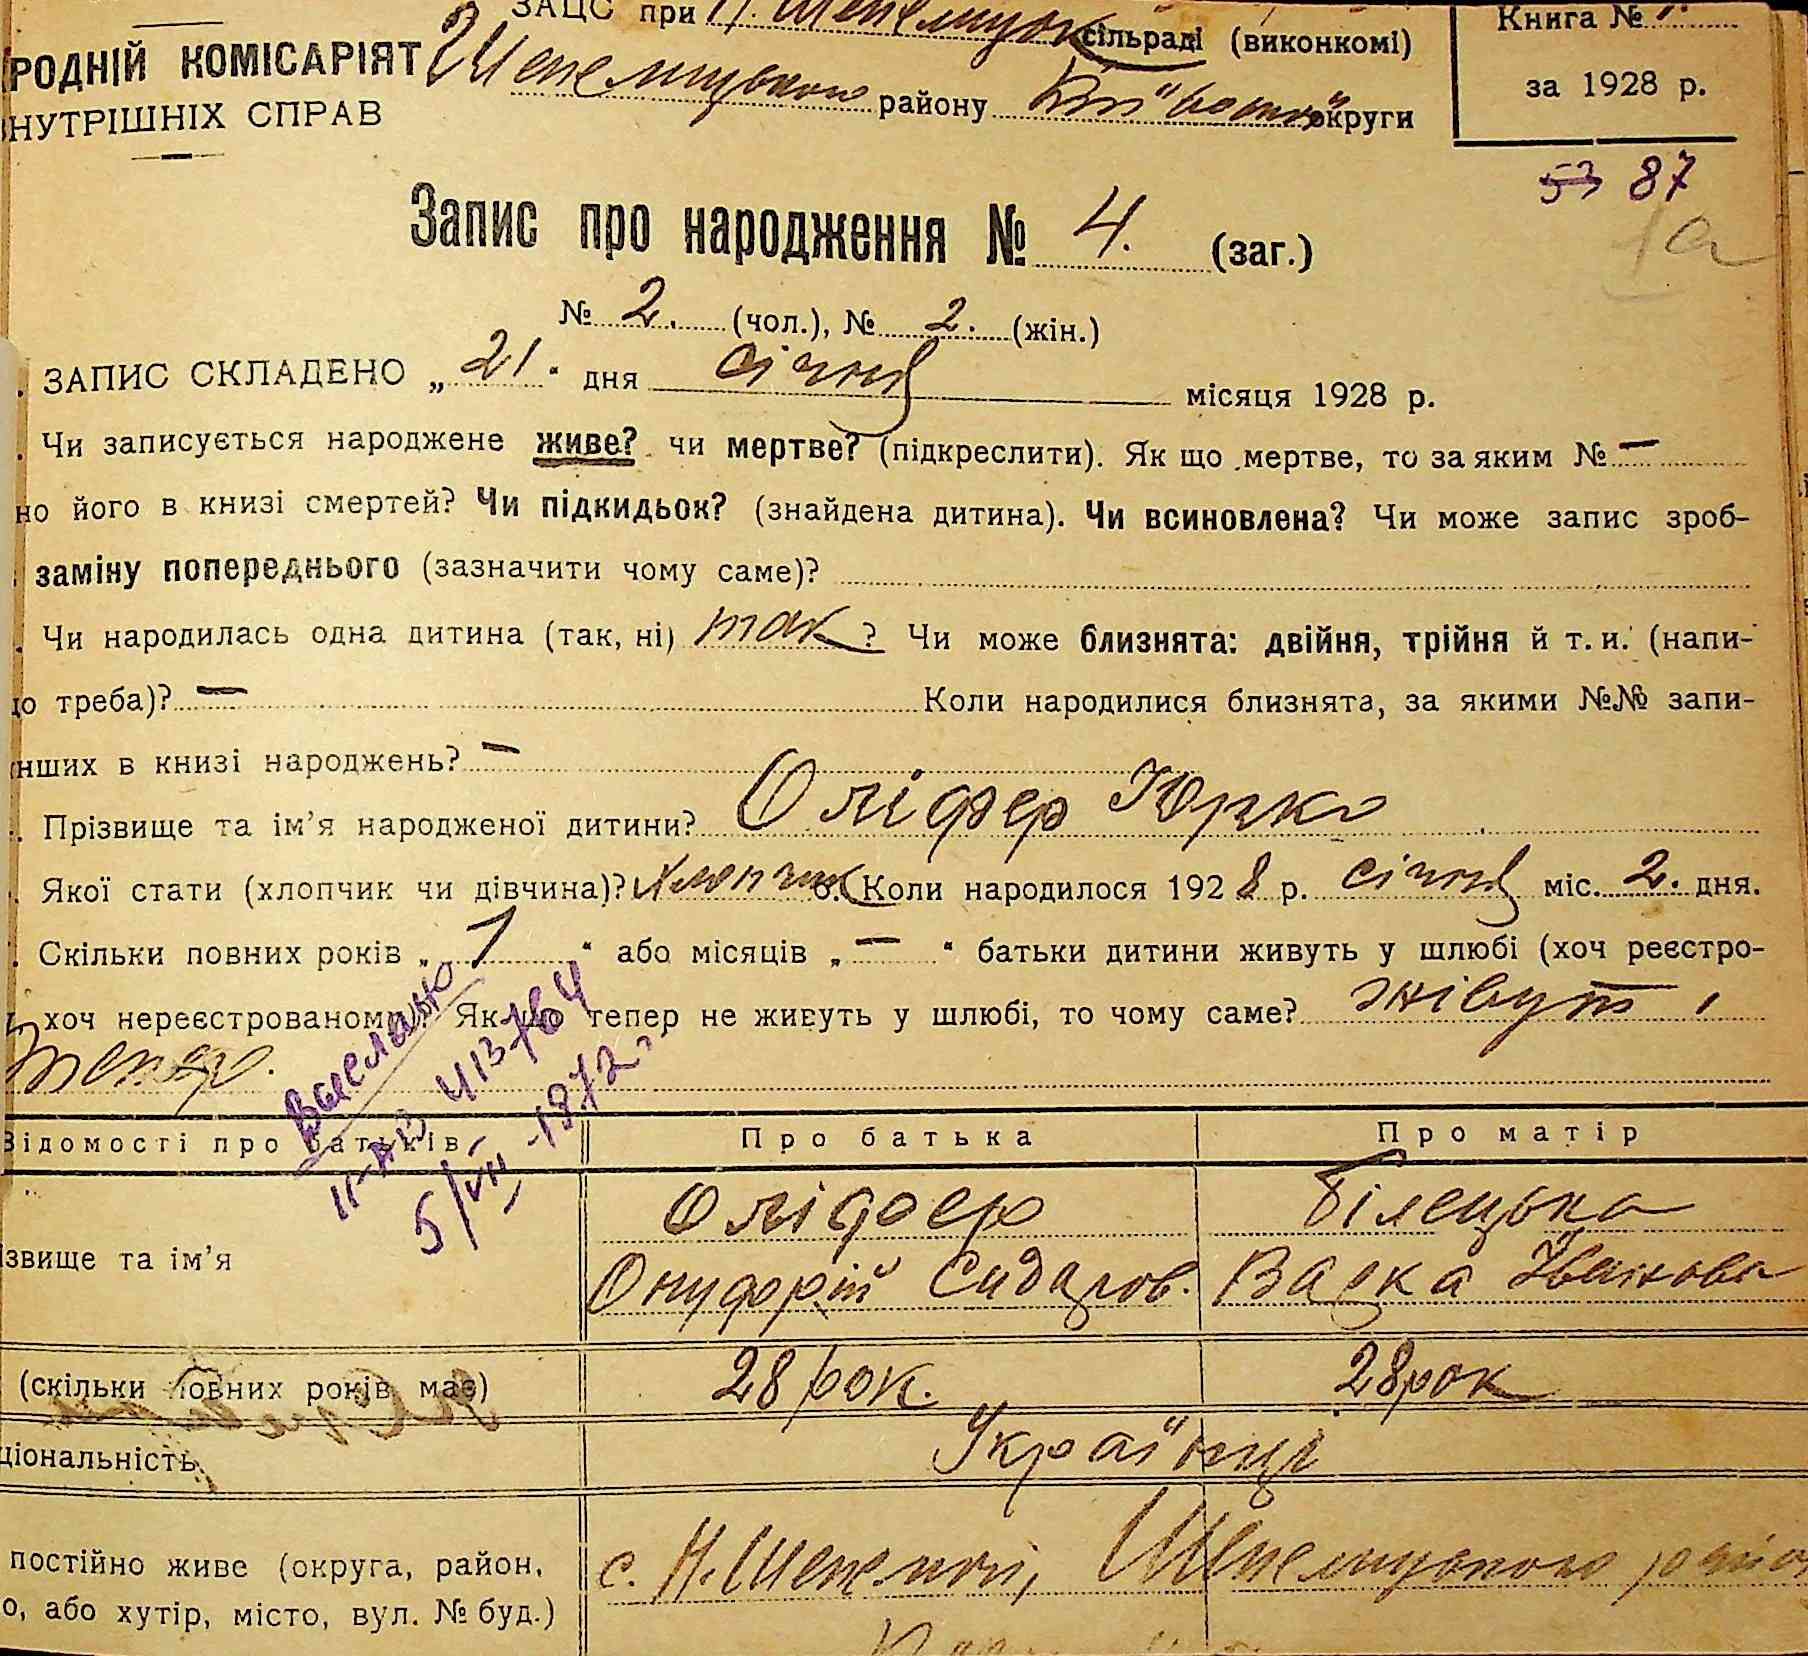 ЗАЦС при Н. Шепелицьк сільраді (виконкомі)
Книга №
РОДНІЙ КОМІСАРІЯТ
Шепелицького району округи
за 1928 р.
НУТРІШНІХ СПРАВ
53 87
1а
Запис про народження № 4. (заг.)
№ 2. (чол.), № 2. (жін.)
ЗАПИС СКЛАДЕНО „ 21 “ дня січня місяця 1928 р.
Чи записується народжене живе? чи мертве? (підкреслити). Як що мертве, то за яким № —
но його в книзі смертей? Чи підкидьок? (знайдена дитина). Чи всиновлена? Чи може запис зроб-
заміну попереднього (зазначити чому саме)?
Чи народилась одна дитина (так, ні) так ? Чи може близнята: двійня, трійня й т. и. (напи-
до треба)? — Коли народилися близнята, за якими №№ запи-
нших в книзі народжень? —
Прізвище та ім’я народженої дитини? Оліфер Юрко
Якої стати (хлопчик чи дівчина)? хлопчик 6. Коли народилося 1928 р. січня міс. 2. дня.
Скільки повних років „ 1 “ або місяців „ — “ батьки дитини живуть у шлюбі (хоч реєстро-
хоч нереєстрованому? Як що тепер не живуть у шлюбі, то чому саме? живуть і
тепер.
Выслано
II-АВ 413764
5/VIII-1972 г.
Відомості про батьків
Про батька
Про матір
Оліфер
Білецька
звище та ім’я
Онуфрій Сидоров.
Варка Іванова
(скільки повних років має)
28 рок.
28 рок
ціональність
Українці
постійно живе (округа, район,
с. Н. Шепеличі, Шепелицького району
о, або хутір, місто, вул. № буд.)